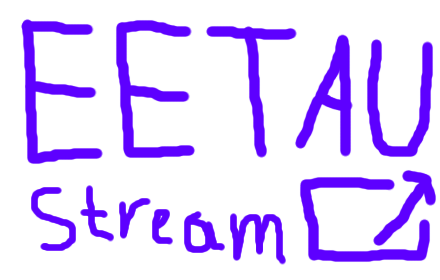 EETAU
Stream